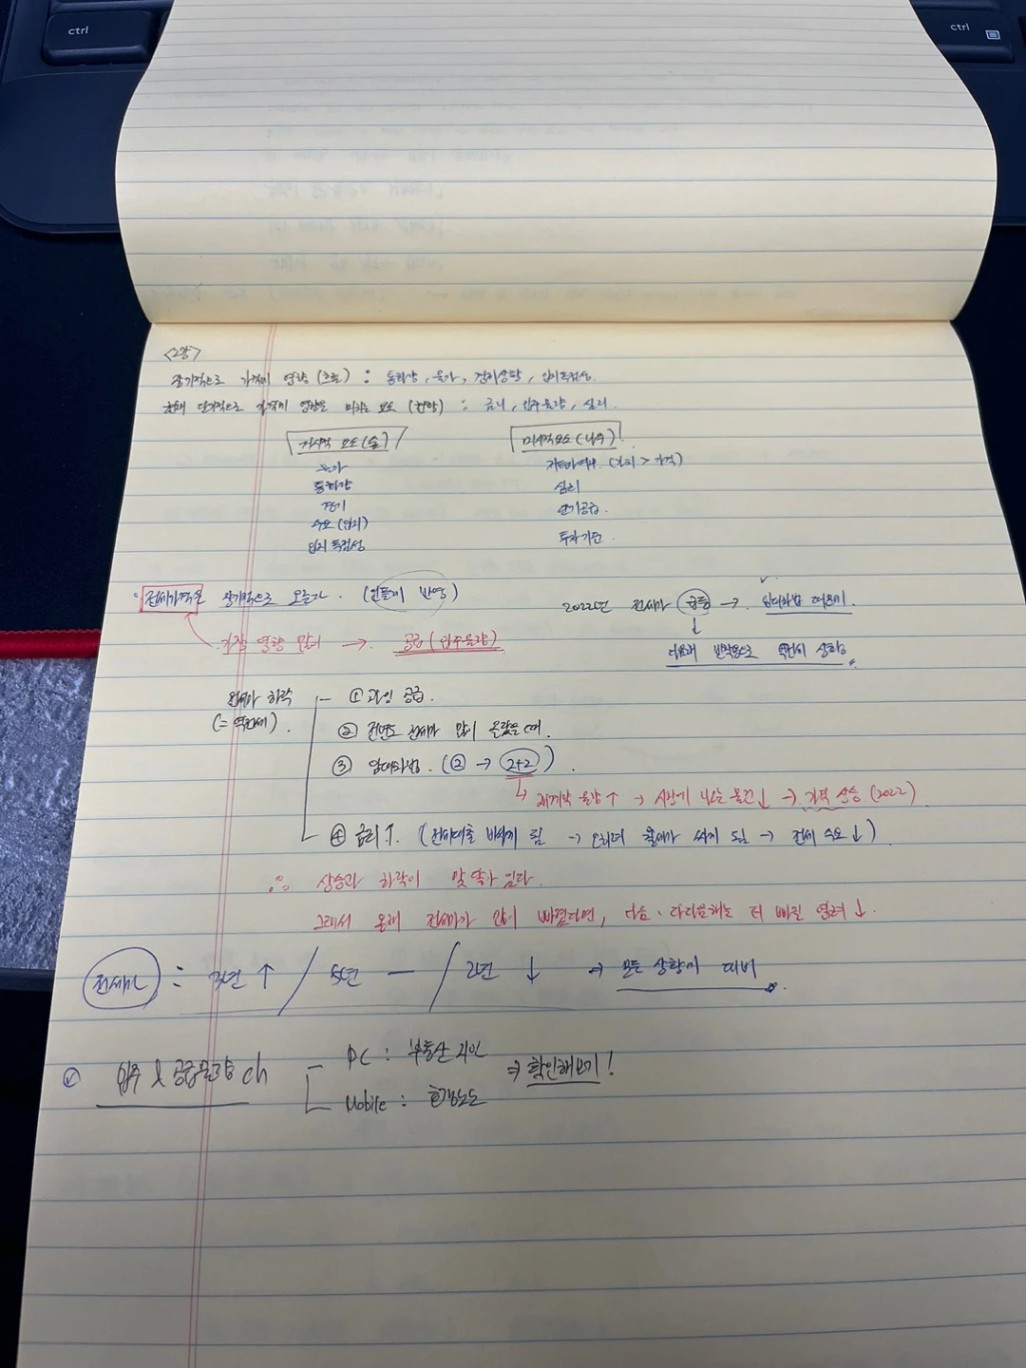 ctrl
ctrl
<2강>
장기적으로 가격에 영향 (흐름) : 통화량, 물가, 경제상황, 입지독점성.
단기적으로 가격에 영향을 미치는 요소 (현황) : 금리, 입주물량, 심리.
거시적 요소 (숲)
미시적요소 (나무)
물가
저평가여부 (가치 > 가격)
통화량
심리
경기
단기공급.
수요 (입지)
투자기준.
입지 독점성
전세가격은 장기적으로 오른다. (인플레 반영)
2022년 전세가 급등 → 임대차법 때문에.
가장 영향 많이 → 공급 (입주물량)
반작용으로 역전세 상황.
전세가 하락 ① 과잉 공급.
(= 역전세).
② 전년도 전세가 많이 올랐을 때.
③ 임대차법. (② → 2+2).
재계약 물량 ↑ → 시장에 나오는 물건 ↓ → 가격 상승 (2022)
④ 금리 ↑. (전세대출 비싸게 됨 → 오히려 월세가 싸게 됨 → 전세 수요 ↓)
∴ 상승과 하락이 맞물려 있다.
그래서 올해 전세가가 많이 빠졌다면, 다음·다다음해는 더 빠질 염려 ↓.
전세가 : 3년 ↑ / 5년 — / 2년 ↓ ⇒ 모든 상황에 대비.
입주 & 공급물량 ch PC : 부동산 지인 ⇒ 확인해보기!
Mobile : 호갱노노